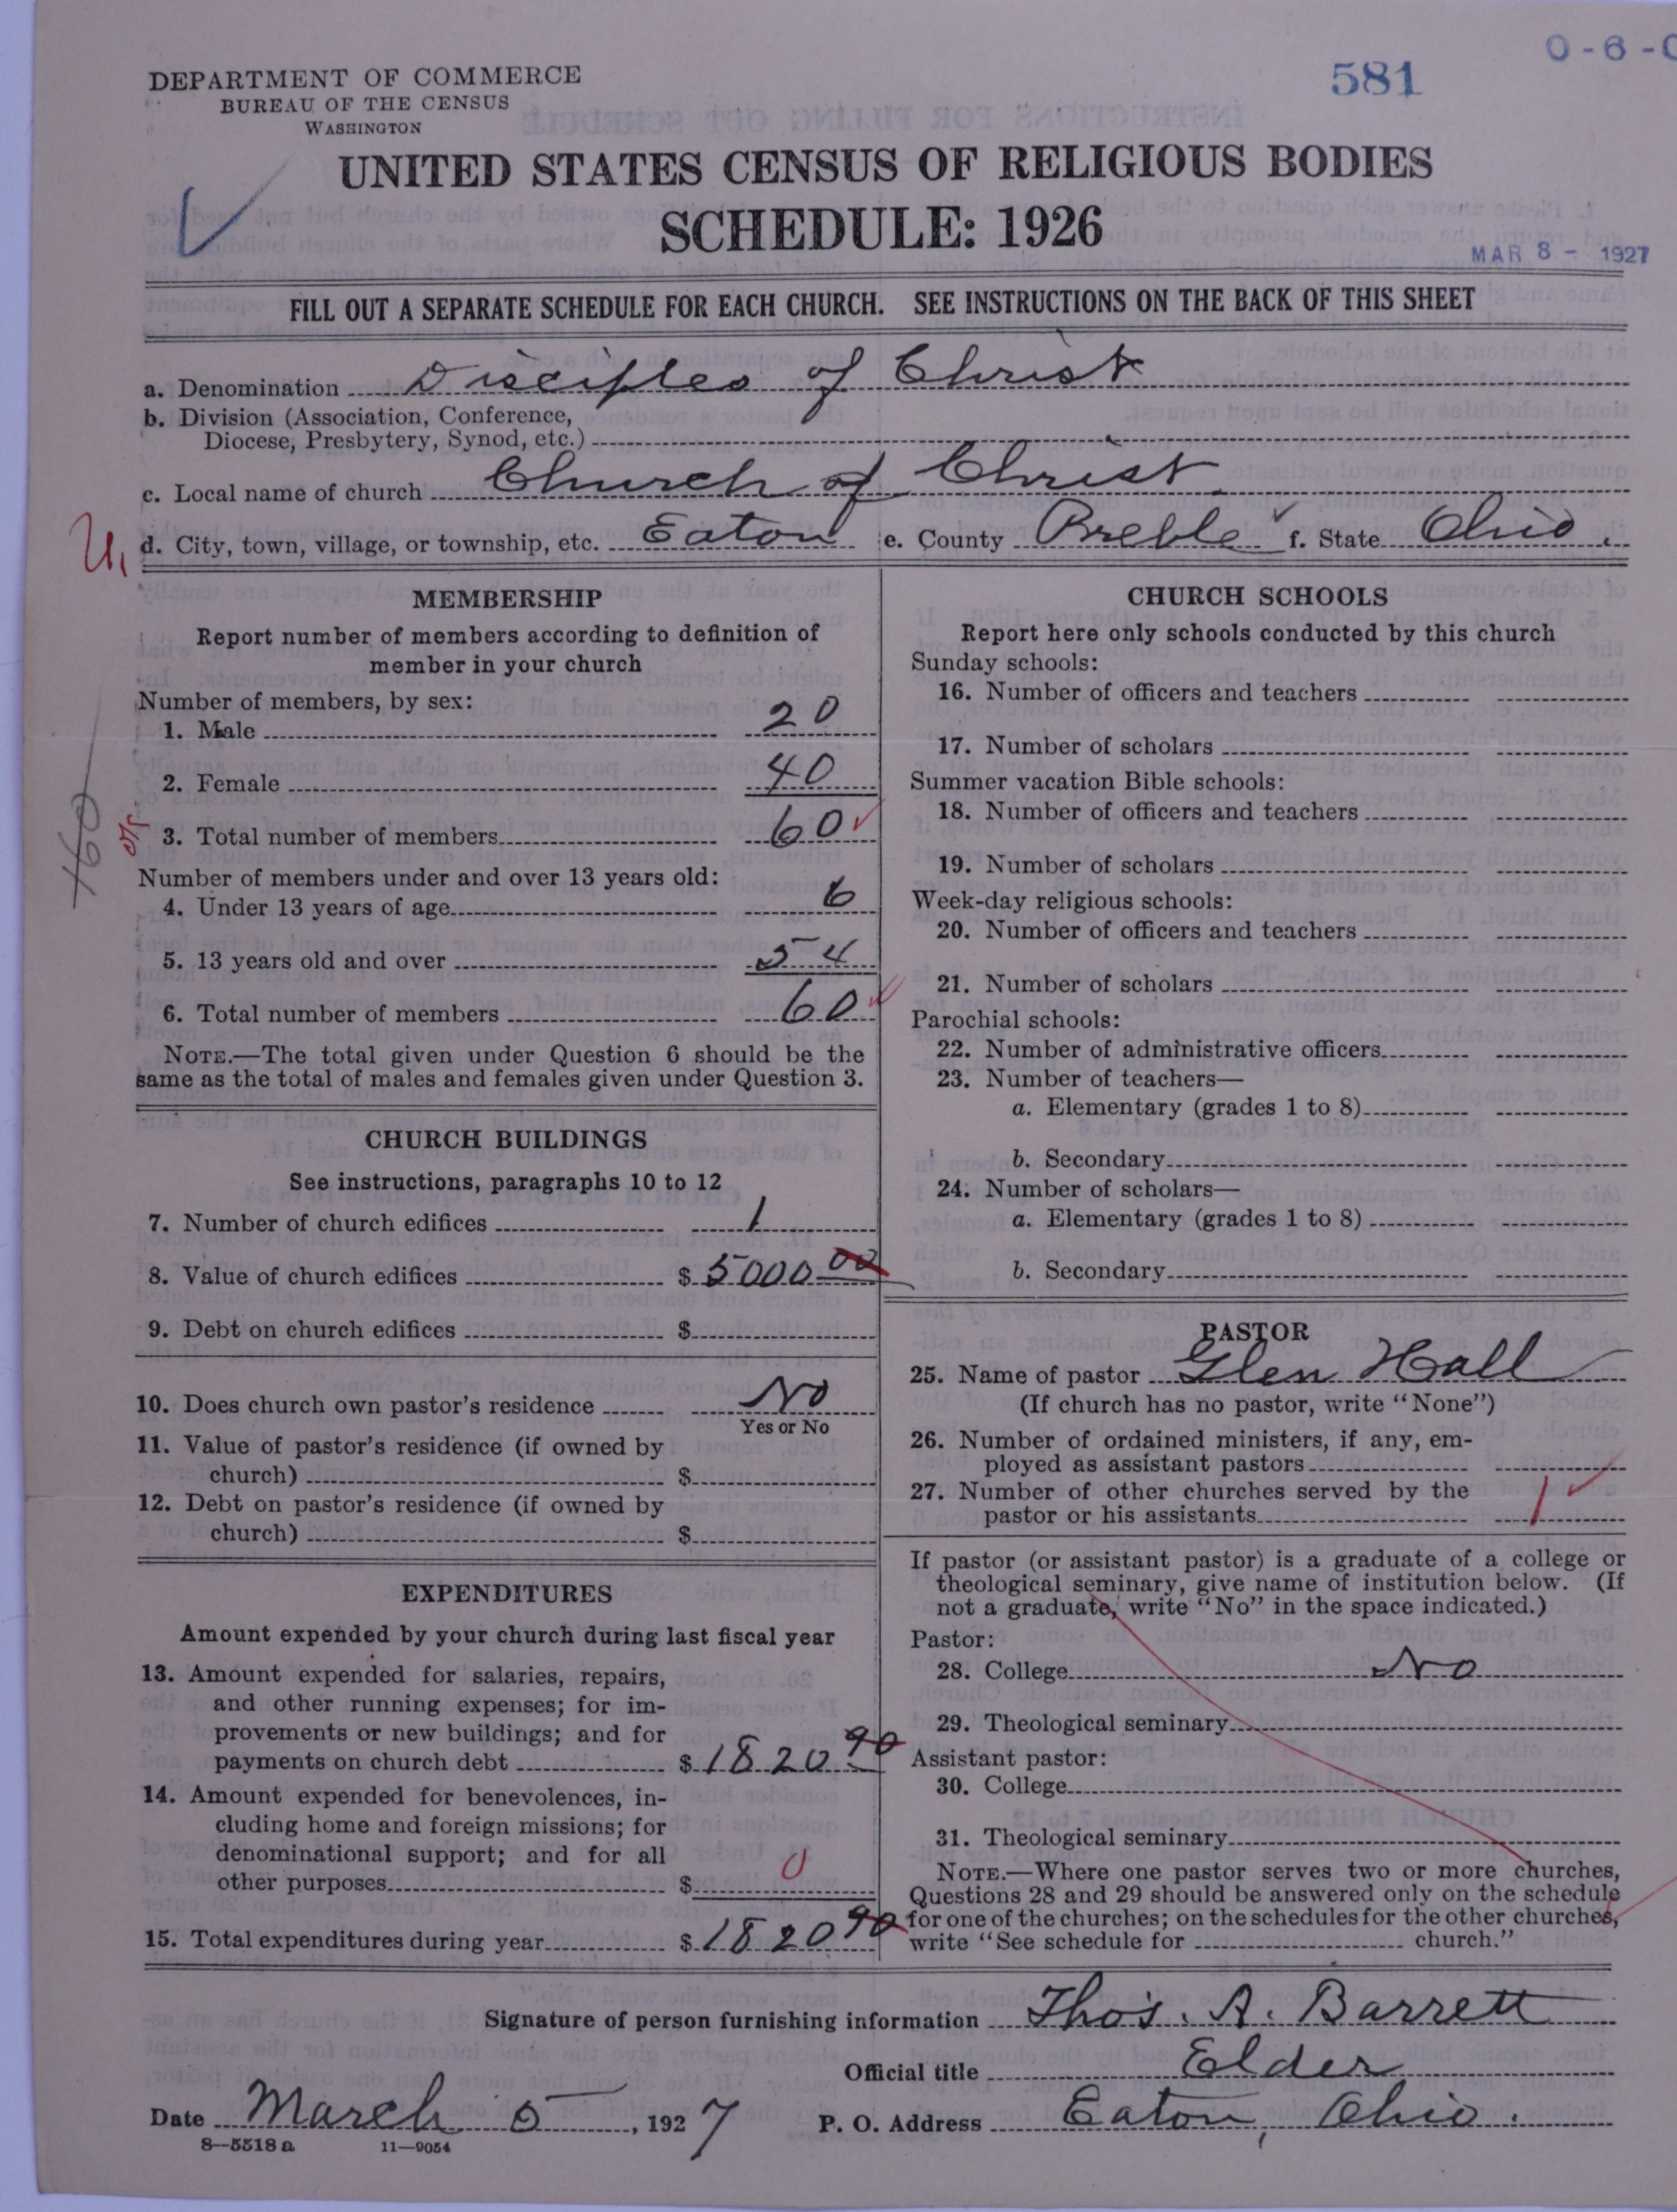 0-6-0
581
DEPARTMENT OF COMMERCE
BUREAU OF THE CENSUS
WASHINGTON
UNITED STATES CENSUS OF RELIGIOUS BODIES
SCHEDULE: 1926
MAR 8 - 1927
FILL OUT A SEPARATE SCHEDULE FOR EACH CHURCH. SEE INSTRUCTIONS ON THE BACK OF THIS SHEET
a. Denomination Disciples of Christ
b. Division (Association, Conference,
Diocese, Presbytery, Synod, etc.)
c. Local name of church Church of Christ
d. City, town, village, or township, etc. Eaton e. County Preble f. State Ohio.
MEMBERSHIP
Report number of members according to definition of
member in your church
Number of members, by sex:
1. Male 20
2. Female 40
3. Total number of members 60
Number of members under and over 13 years old:
4. Under 13 years of age 6
5. 13 years old and over 54
6. Total number of members 60
NOTE.—The total given under Question 6 should be the
same as the total of males and females given under Question 3.
CHURCH BUILDINGS
See instructions, paragraphs 10 to 12
7. Number of church edifices 1
8. Value of church edifices $ 5000 00
9. Debt on church edifices $
10. Does church own pastor's residence No
Yes or No
11. Value of pastor's residence (if owned by
church) $
12. Debt on pastor's residence (if owned by
church) $
EXPENDITURES
Amount expended by your church during last fiscal year
13. Amount expended for salaries, repairs,
and other running expenses; for im-
provements or new buildings; and for
payments on church debt $ 1820 90
14. Amount expended for benevolences, in-
cluding home and foreign missions; for
denominational support; and for all
other purposes $ 0
15. Total expenditures during year $ 1820 90
CHURCH SCHOOLS
Report here only schools conducted by this church
Sunday schools:
16. Number of officers and teachers
17. Number of scholars
Summer vacation Bible schools:
18. Number of officers and teachers
19. Number of scholars
Week-day religious schools:
20. Number of officers and teachers
21. Number of scholars
Parochial schools:
22. Number of administrative officers
23. Number of teachers—
a. Elementary (grades 1 to 8)
b. Secondary
24. Number of scholars—
a. Elementary (grades 1 to 8)
b. Secondary
PASTOR
25. Name of pastor Glen Hall
(If church has no pastor, write "None")
26. Number of ordained ministers, if any, em-
ployed as assistant pastors
27. Number of other churches served by the
pastor or his assistants 1
If pastor (or assistant pastor) is a graduate of a college or
theological seminary, give name of institution below. (If
not a graduate, write "No" in the space indicated.)
Pastor:
28. College No
29. Theological seminary
Assistant pastor:
30. College
31. Theological seminary
NOTE.—Where one pastor serves two or more churches,
Questions 28 and 29 should be answered only on the schedule
for one of the churches; on the schedules for the other churches,
write "See schedule for church."
Signature of person furnishing information Tho's. A. Barrett
Official title Elder
Date March 5, 1927 P. O. Address Eaton, Ohio.
8-5518 a 11-9054